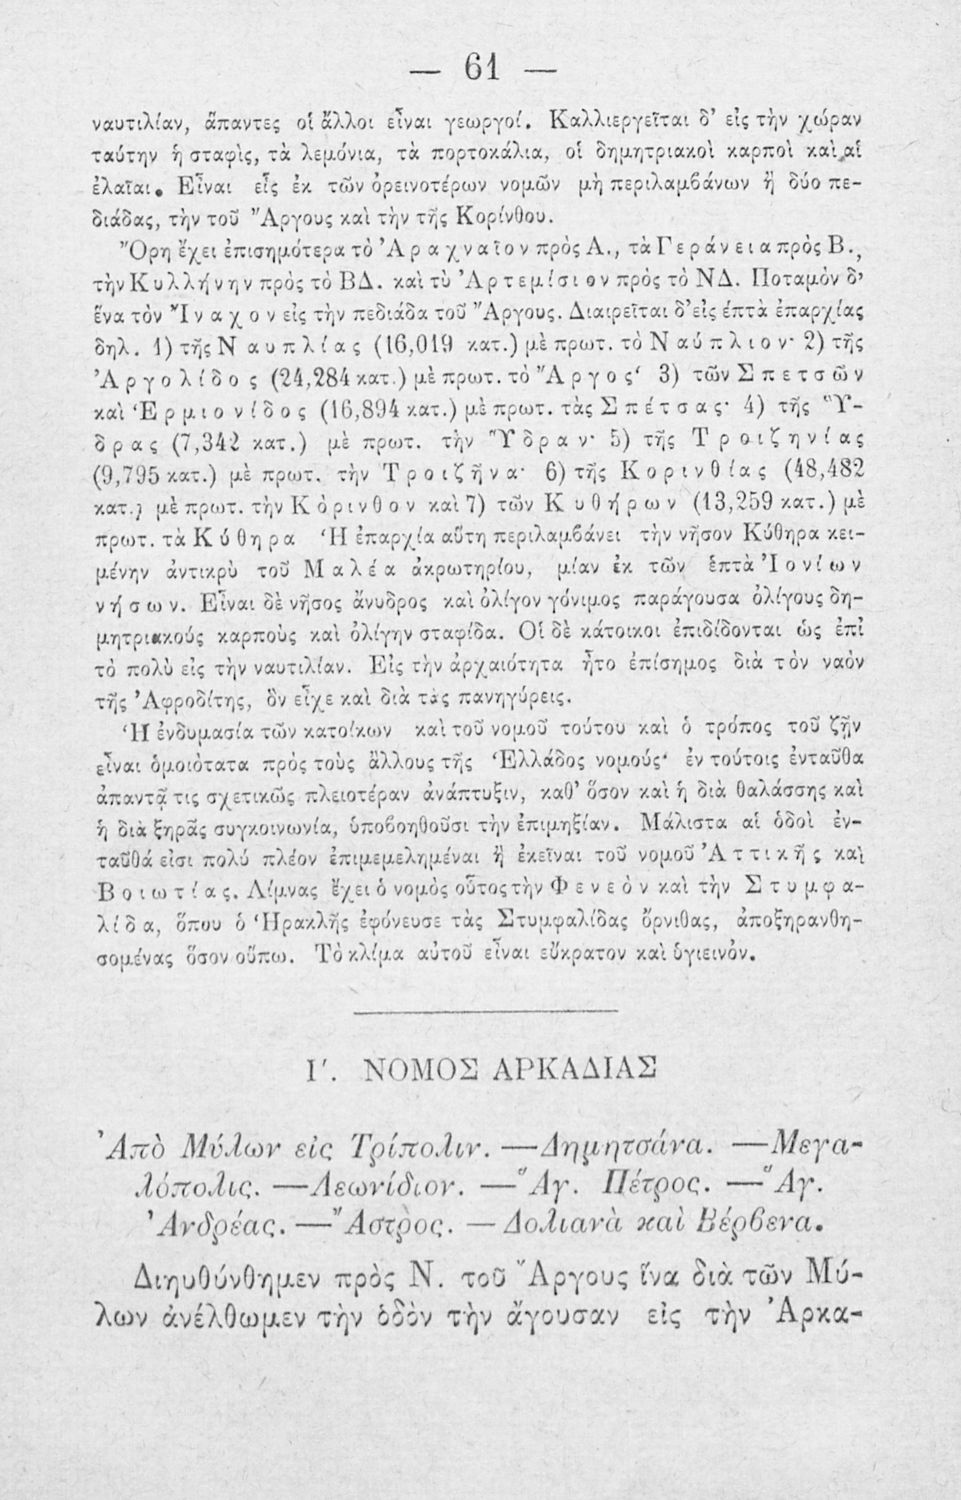 — 61 —
ναυτιλίαν, ἅπαντες οἱ ἄλλοι εἶναι γεωργοί. Καλλιεργεῖται δ’ εἰς τὴν χώραν
ταύτην ἡ σταφὶς, τὰ λεμόνια, τὰ πορτοκάλια, οἱ δημητριακοὶ καρποὶ καὶ αἱ
ἐλαῖαι. Εἶναι εἷς ἐκ τῶν ὀρεινοτέρων νομῶν μὴ περιλαμβάνων ἢ δύο πε-
διάδας, τὴν τοῦ Ἄργους καὶ τὴν τῆς Κορίνθου.
Ὄρη ἔχει ἐπισημότερα τὸ Ἀραχναῖον πρὸς Α., τὰ Γεράνεια πρὸς Β.,
τὴν Κυλλήνην πρὸς τὸ ΒΔ. καὶ τὸ Ἀρτεμίσιον πρὸς τὸ ΝΔ. Ποταμὸν δ’
ἕνα τὸν Ἴναχον εἰς τὴν πεδιάδα τοῦ Ἄργους. Διαιρεῖται δ’ εἰς ἑπτὰ ἐπαρχίας
δηλ. 1) τῆς Ναυπλίας (16,019 κατ.) μὲ πρωτ. τὸ Ναύπλιον· 2) τῆς
Ἀργολίδος (24,284 κατ.) μὲ πρωτ. τὸ Ἄργος· 3) τῶν Σπετσῶν
καὶ Ἑρμιονίδος (16,894 κατ.) μὲ πρωτ. τὰς Σπέτσας· 4) τῆς Ὕ-
δρας (7,342 κατ.) μὲ πρωτ. τὴν Ὕδραν· 5) τῆς Τροιζηνίας
(9,795 κατ.) μὲ πρωτ. τὴν Τροιζῆνα· 6) τῆς Κορινθίας (48,482
κατ.) μὲ πρωτ. τὴν Κόρινθον καὶ 7) τῶν Κυθήρων (13,259 κατ.) μὲ
πρωτ. τὰ Κύθηρα Ἡ ἐπαρχία αὕτη περιλαμβάνει τὴν νῆσον Κύθηρα κει-
μένην ἀντικρὺ τοῦ Μαλέα ἀκρωτηρίου, μίαν ἐκ τῶν ἑπτὰ Ἰονίων
νήσων. Εἶναι δὲ νῆσος ἄνυδρος καὶ ὀλίγον γόνιμος παράγουσα ὀλίγους δη-
μητριακούς καρποὺς καὶ ὀλίγην σταφίδα. Οἱ δὲ κάτοικοι ἐπιδίδονται ὡς ἐπὶ
τὸ πολὺ εἰς τὴν ναυτιλίαν. Εἰς τὴν ἀρχαιότητα ἦτο ἐπίσημος διὰ τὸν ναὸν
τῆς Ἀφροδίτης, ὃν εἶχε καὶ διὰ τὰς πανηγύρεις.
Ἡ ἐνδυμασία τῶν κατοίκων καὶ τοῦ νομοῦ τούτου καὶ ὁ τρόπος τοῦ ζῇν
εἶναι ὁμοιότατα πρὸς τοὺς ἄλλους τῆς Ἑλλάδος νομούς· ἐν τούτοις ἐνταῦθα
ἀπαντᾷ τις σχετικῶς πλειοτέραν ἀνάπτυξιν, καθ’ ὅσον καὶ ἡ διὰ θαλάσσης καὶ
ἡ διὰ ξηρᾶς συγκοινωνία, ὑποβοηθοῦσι τὴν ἐπιμηξίαν. Μάλιστα αἱ ὁδοὶ ἐν-
ταῦθά εἰσι πολύ πλέον ἐπιμεμελημέναι ἢ ἐκεῖναι τοῦ νομοῦ Ἀττικῆς καὶ
Βοιωτίας. Λίμνας ἔχει ὁ νομὸς οὗτος τὴν Φενεὸν καὶ τὴν Στυμφα-
λίδα, ὅπου ὁ Ἡρακλῆς ἐφόνευσε τὰς Στυμφαλίδας ὄρνιθας, ἀποξηρανθη-
σομένας ὅσον οὔπω. Τὸ κλίμα αὐτοῦ εἶναι εὔκρατον καὶ ὑγιεινὸν.
Ι'. ΝΟΜΟΣ ΑΡΚΑΔΙΑΣ
Ἀπὸ Μύλων εἰς Τρίπολιν. —Δημητσάνα. —Μεγα-
λόπολις. —Λεωνίδιον. —Ἅγ. Πέτρος. —Ἅγ.
Ἀνδρέας. —Ἄστρος. —Δολιανὰ καὶ Βέρβενα.
Διηυθύνθημεν πρὸς Ν. τοῦ Ἄργους ἵνα διὰ τῶν Μύ-
λων ἀνέλθωμεν τὴν ὁδὸν τὴν ἄγουσαν εἰς τὴν Ἀρκα-